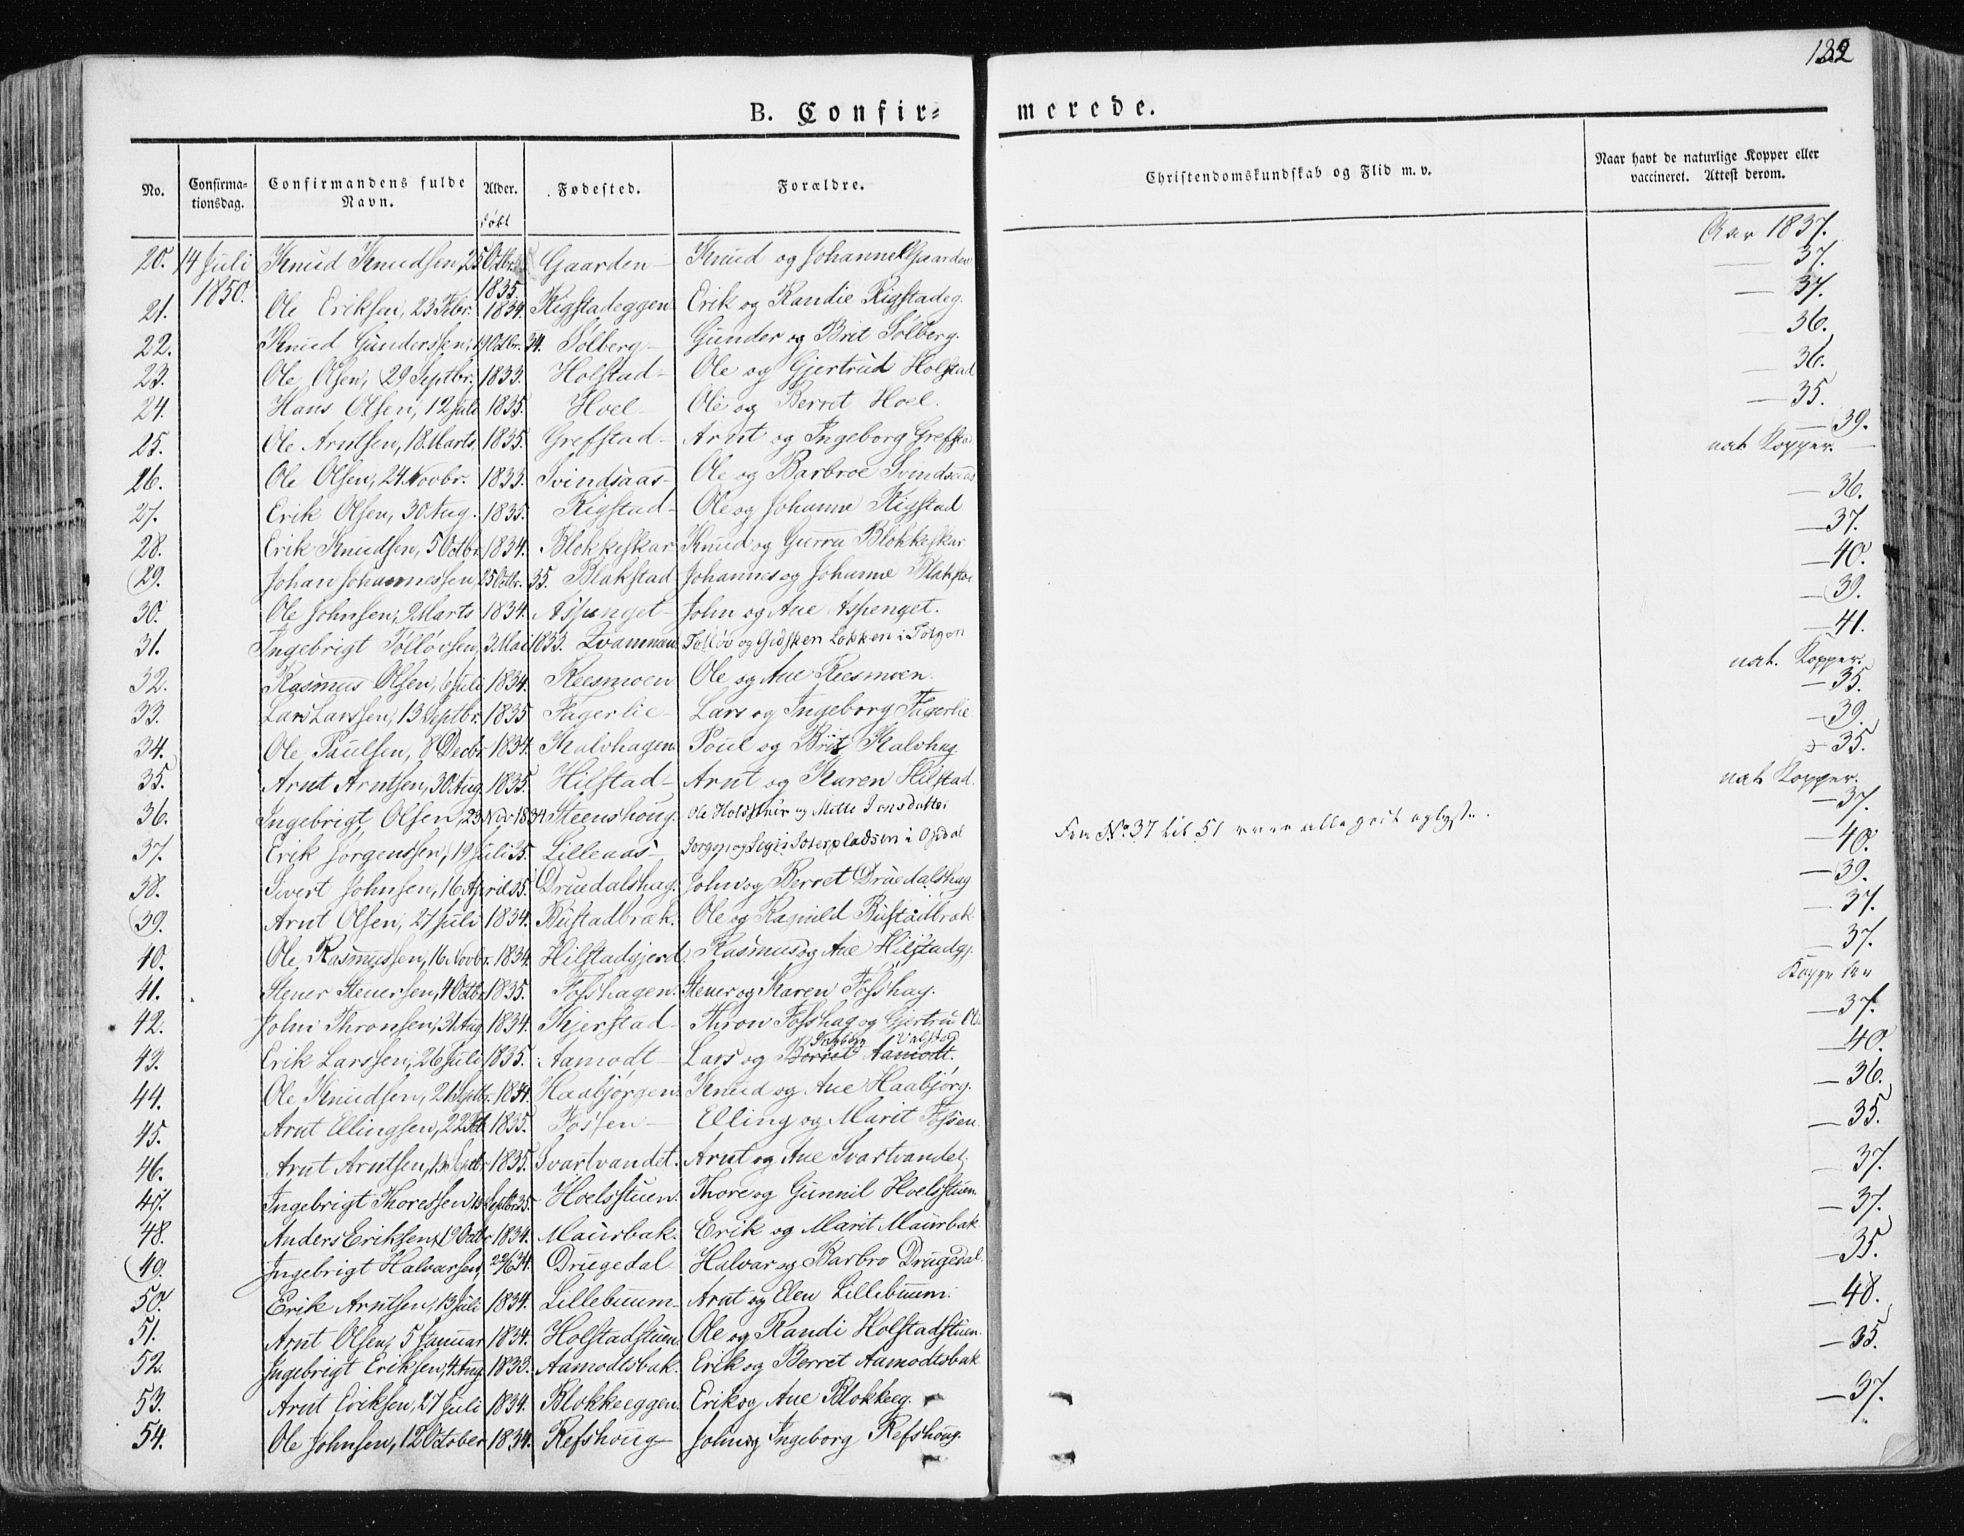 132
B. Confir= merede.
No. Confirma-tionsdag. Confirmandens fulde Navn. Alder. Fødested. Forældre. Christendomskundskab og Flid m. v. Naar havt de naturlige Kopper eller vaccineret. Attest derom.
født
Aar 1837.
20. 14 Juli 1850. Knud Knudsen, 25 Octbr. 1835. Gaarden Knud og Johanne Gaarden 37.
21. Ole Eriksen, 23 Febr. 1834. Rigstadeggen Erik og Randie Rigstadeg. 37.
22. Knud Gunderssen, 19 Octbr. 34. Sølberg Gunder og Brit Sølberg. 36.
23. Ole Olsen, 29 Septbr. 1833. Holstad Ole og Gjertrud Holstad 36.
24. Hans Olsen, 12 Juli 1835. Hoel Ole og Berret Hoel. 35.
25. Ole Arntsen, 18 Marts 1835. Grefstad Arnt og Ingeborg Grefstad 39.
nat Kopper.
26. Ole Olsen, 24 Novbr. 1833. Svindsaas Ole og Barbroe Svindsaas
27. Erik Olsen, 30 Aug. 1835. Rigstad Ole og Johanne Rigstad 36.
28. Erik Knudsen, 5 Octbr. 1834. Blokkeskar Knud og Gurru Blokkeskar 37.
29. Johan Johannessen, 25 Octbr. 35. Blakstad Johannes og Johanne Blakstad 40.
30. Ole Johnsen, 2 Marts 1834. Aspenget John og Ane Aspenget. 39.
31. Ingebrigt Tølløvsen, 3 Mai 1833. Qvammen Tølløv og Gidsken Løkken i Tolgen 41.
nat. Kopper.
32. Rasmus Olsen, 6 Juli 1834. Reesmoen Ole og Ane Reesmoen. 35.
33. Lars Larssen, 13 Septbr. 1835 Fagerlie Lars og Ingeborg Fagerlie 39.
34. Ole Paulsen, 8 Decbr. 1834. Kalvhagen Poul og Brit Kalvhag. 35.
35. Arnt Arntsen, 30 Aug. 1835. Hilstad Arnt og Karen Hilstad. nat Kopper.
36. Ingebrigt Olsen, 23 Nov 1834 Steenshoug. Ole Holsstuen og Mette Jonsdatter 37.
Fra No 37 til 51 vare alle godt oplyste.
37. Erik Jørgenssen, 19 Juli 35. Lilleaas 40.
38. Sivert Johnsen, 16 April 35. Druedalshag. John og Berret Druedalshag 39.
39. Arnt Olsen, 27 Juli 1834. Bustadbræk. Ole og Ragnild Bustadbræk 37.
40. Ole Rasmussen, 16 Novbr. 1834. Hilstadgjerd. Rasmus og Ane Hilstadgj. 37.
41. Stener Stenersen, 4 Octbr. 1835. Fosshagen. Stener og Karen Fosshag.
42. John Thronsen, 31 Aug. 1834. Kjerstad Thron Fosshag og Gjertrud 37.
43. Erik Larssen, 26 Juli 1835. Aamodt Lars og Berret Aamodt. 40.
44. Ole Knudsen, 21 Septb. 1834. Haabjørgen Knud og Ane Haabjørg. 36.
45. Arnt Ellingsen, 22 1835. Fossen Elling og Marit Fossen. 35.
46. Arnt Arntsen, 13 Septbr 1835. Svartvandet. Arnt og Ane Svartvandet. 37.
47. Ingebrigt Thoressen, 13 Septbr 35. Hoelsstuen. Thore og Gunnil Hoelsstuen 37.
48. Anders Eriksen, 19 Octbr. 1834. Maurbak. Erik og Marit Maurbak 35.
49. Ingebrigt Halvarsen, 22/6 34. Drugedal Halvar og Barbro Drugedal.
50. Erik Arntsen, 13 Juli 1834. Lillebuum Arnt og Elen Lillebuum. 48.
51. Arnt Olsen, 5 Januar 1834. Holstadstuen Ole og Randi Holstadstuen.
52. Ingebrigt Eriksen, 4 Aug. 1833. Aamodtsbak. Erik og Berret Aamodtsbak 35
53. Arnt Eriksen, 27 Juli 1834. Blokkeeggen. Erik og Ane Blokkeeg. 37.
54. Ole Johnsen, 12 October 1834. Refshoug John og Ingeborg Refshoug.